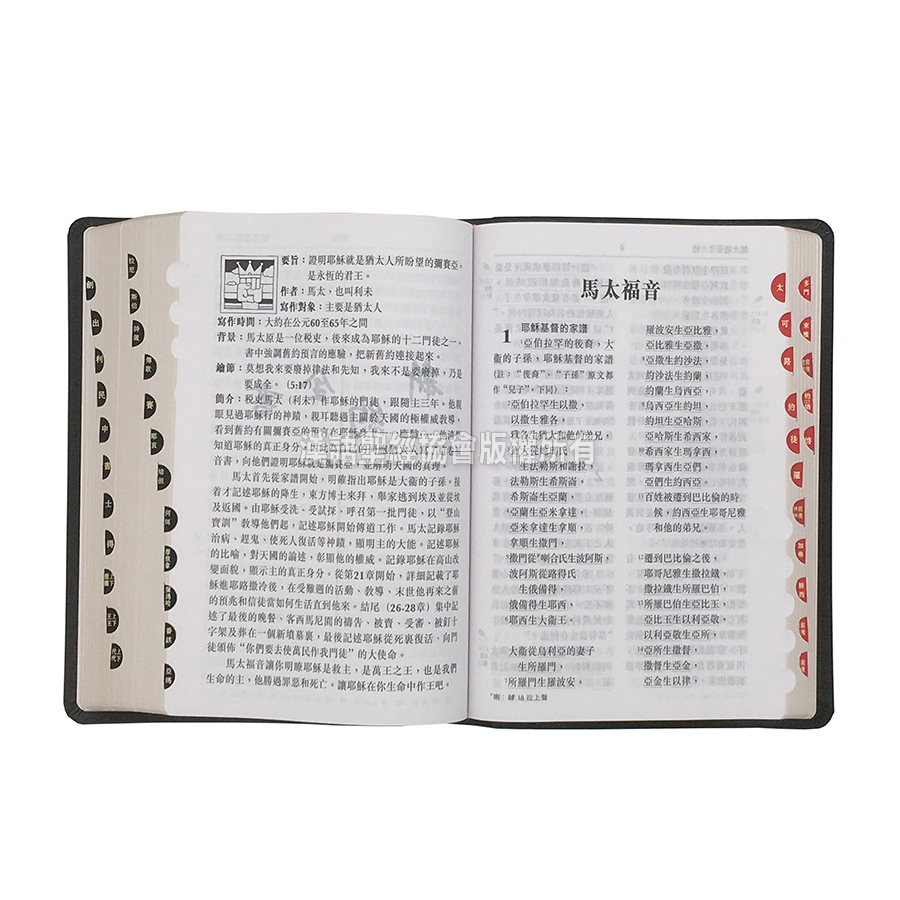 要旨：證明耶穌就是猶太人所盼望的彌賽亞，
是永恆的君王。
作者：馬太，也叫利未
寫作對象：主要是猶太人
寫作時間：大約在公元60至65年之間
背景：馬太原是一位稅吏，後來成為耶穌的十二門徒之一。
書中強調舊約預言的應驗，把新舊約連接起來。
鑰節：莫想我來要廢掉律法和先知，我來不是要廢掉，乃是
要成全。（5:17）
簡介：稅吏馬太（利未）作耶穌的門徒，跟隨主三年。他親
眼見過耶穌行的神蹟，親耳聽過主關於天國的極權威教導，
看到舊約有關彌賽亞的預言在耶穌身上一一應驗……他清楚
知道耶穌的真正身分
音書，向他們證明耶穌就是彌賽亞，並解明天國的真理。
首先從家譜開始，明確指出耶穌是大衞的子孫。接
着才記述耶穌的降生，東方博士來拜，舉家逃到埃及並從埃
及返國。由耶穌受洗、受試探、呼召第一批門徒，以“登山
寶訓”教導他們起，記述耶穌開始傳道工作。馬太記錄耶穌
治病、趕鬼、使死人復活等神蹟，顯明主的大能。記述耶穌
的比喻，對天國的論述，彰顯他的權威。記錄耶穌在高山改
變面貌，顯示主的真正身分。從第21章開始，詳細記載了耶
穌進耶路撒冷後，在受難週的活動、教導、末世他再來之前
的預兆和信徒當如何生活直到他來。結尾（26-28章）集中記
述了最後的晚餐、客西馬尼園的禱告、被賣、受審、被釘十
字架及葬在一個新墳墓裏，最後記述耶穌從死裏復活、向門
徒頒佈“你們要去使萬民作我門徒”的大使命。
馬太福音讓你明瞭耶穌是救主，是萬王之王，也是我們
生命的主，他勝過罪惡和死亡。讓耶穌在你生命中作王吧。
馬太福音
耶穌基督的家譜
1 亞伯拉罕的後裔，大
衞的子孫，耶穌基督的家譜
（註：“後裔”、“子孫”原文都
作“兒子”。下同）：
²亞伯拉罕生以撒，
以撒生雅各，
雅各生猶大和他的弟兄，
生法勒斯和謝拉，
法勒斯生希斯崙，
希斯崙生亞蘭，
⁴亞蘭生亞米拿達，
亞米拿達生拿順，
拿順生撒門，
⁵撒門從喇合氏生波阿斯，
波阿斯從路得氏
生俄備得，
俄備得生耶西，
⁶耶西生大衞王。
大衞從烏利亞的妻子
生所羅門，
⁷所羅門生羅波安，
羅波安生亞比雅，
亞比雅生亞撒，
⁸亞撒生約沙法，
約沙法生約蘭，
約蘭生烏西亞，
⁹烏西亞生約坦，
約坦生亞哈斯，
亞哈斯生希西家，
¹⁰希西家生瑪拿西，
瑪拿西生亞們，
亞們生約西亞。
¹¹百姓被遷到巴比倫的時
候，約西亞生耶哥尼雅
和他的弟兄。
¹²遷到巴比倫之後，
耶哥尼雅生撒拉鐵，
撒拉鐵生所羅巴伯，
¹³所羅巴伯生亞比玉，
亞比玉生以利亞敬，
以利亞敬生亞所，
¹⁴亞所生撒督，
撒督生亞金，
亞金生以律，
漢語聖經協會版權所有
創
出
利
民
申
書
士
得
拉尼
斯伯
詩箴
傳歌
賽
耶哀
結但
何珥
太
可
路
約
徒
羅
加弗